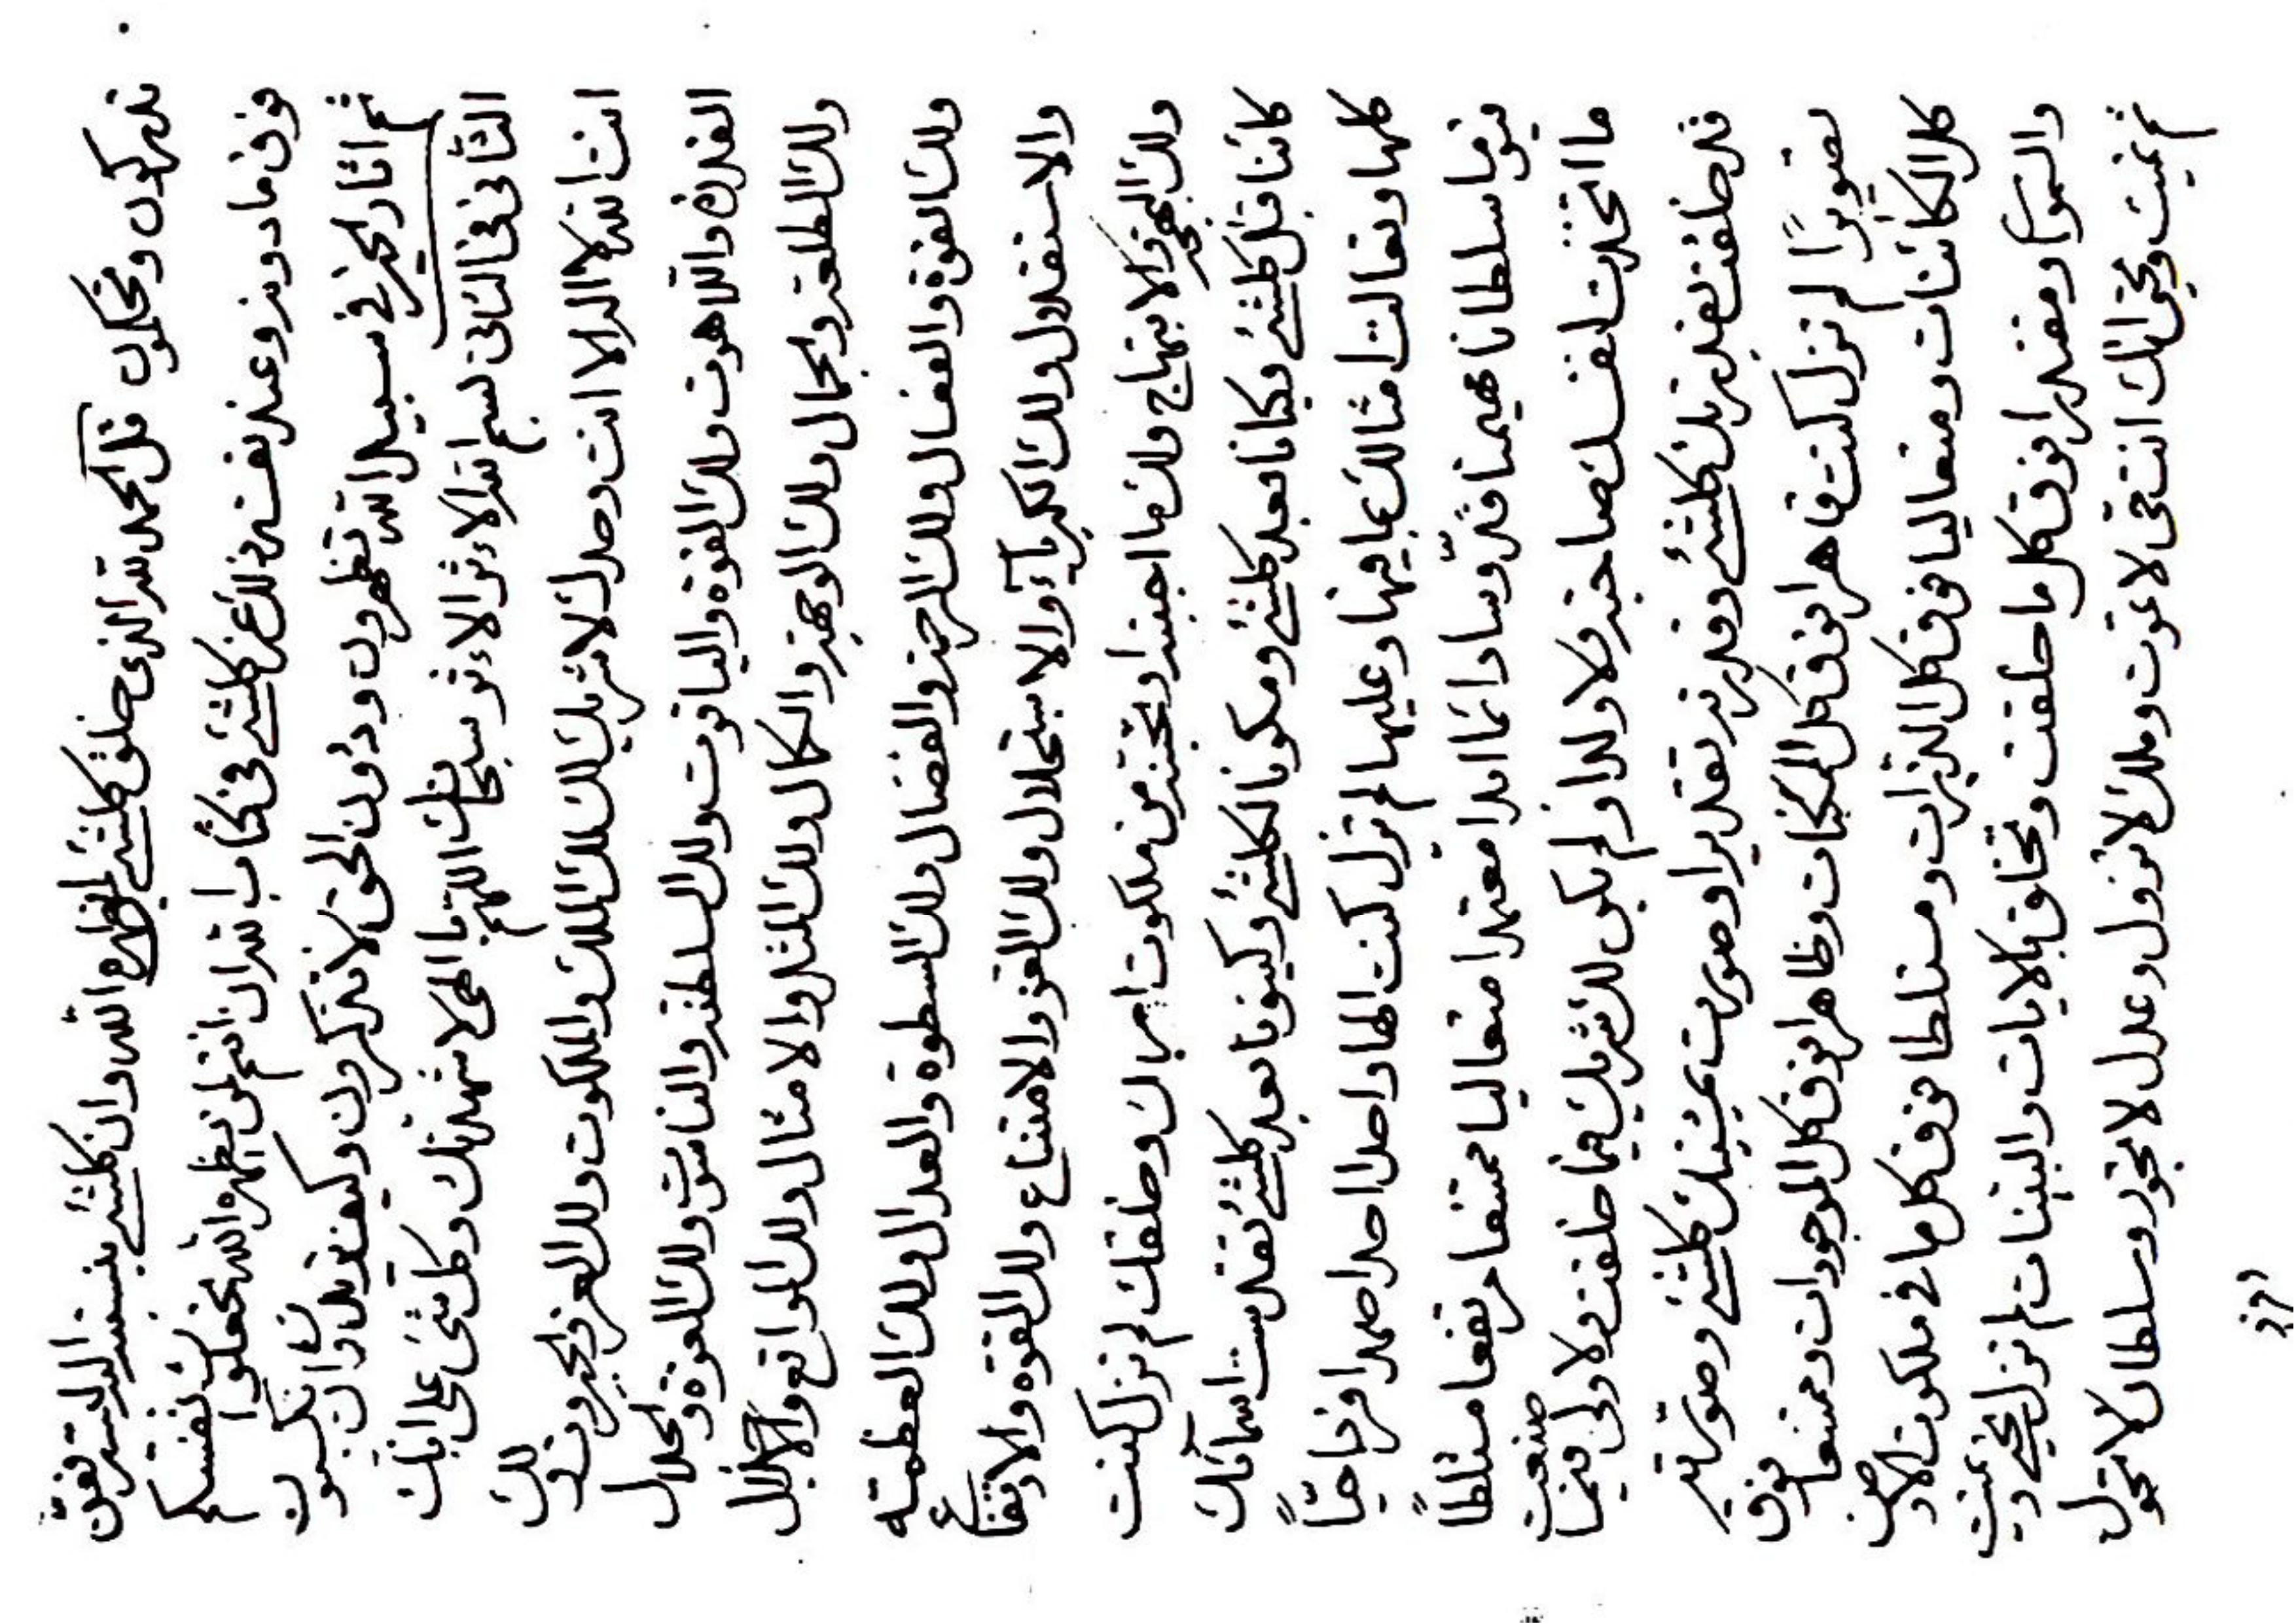 تدركون وتحكمون قل الحمد لله الذى خلق كلشئ لمن يظهره الله وان كلشئ ينسب اليه
فوق ما دونه وعند نفسه ذلك عز كلشئ فى كتاب الله ان انتم لمن يظهره الله
ثم اثار الخير فى سبيل الله تظهرون ودون الحق لا تذكرون وكيف
الثانى فى الثانى بسم الله الاءثر الاءثر سبحانك اللهم يا الهى لاشهدنك وكل شئ على انك
انت الله لا اله الا انت وحدك لا شريك لك لك الملك والملكوت ولك العز والجبروت ولك
القدرة واللاهوت ولك القوة والياقوت ولك السلطنة والناسوت ولك العزة والجلال
ولك الطلعة والجمال ولك الوجهة والكمال ولك المثل والامثال ولك المواقع والاجلال
ولك القوة والفعال ولك الرحمة والفضال ولك السطوة والعدال ولك العظمة
والاستقلال ولك الكبرياء والاستجلال ولك العزة والامتناع ولك القوة والارتفاع
ولك البهجة والابتهاج ولك ما احببته او تحبنه من ملكوت امرك وخلقك لم تزل كنت
كائنا قبل كلشئ وكيانا بعد كلشئ ومكونا لكلشئ وكينونا بعد كلشئ تقدست اسمائك
كلها وتعالت امثالك بما فيها وعليها لم تزل كنت الها واحدا احدا صمدا فردا حيا
قيوما سلطانا مهيمنا قدوسا دائما ابدا معتمدا متعاليا ممتنعا مرتفعا متسلطا
ما اتخذت لنفسك صاحبة ولا ولدا ولم يكن لك شريك فيما خلقت ولا ولى فيما صنعت
قد خلقت بقدرتك كلشئ وقدرته تقديرا وصورت بمشيتك كلشئ وصورته
تصويرا لم تزل كنت قاهرا فوق كل الممكنات وظاهرا فوق كل الموجودات وممتنعا فوق
كل الكائنات ومتعاليا فوق كل الذرات ومتسلطا فوق كل ما فى ملكوت الارض
والسموات ومقتدرا فوق كل ما خلقت وتخلق بالايات والبينات لم تزل تحيى وتميت
ثم تميت وتحيى وانك انت حى لا تموت وملك لا تزول وعدل لا تجور وسلطان لا تحول